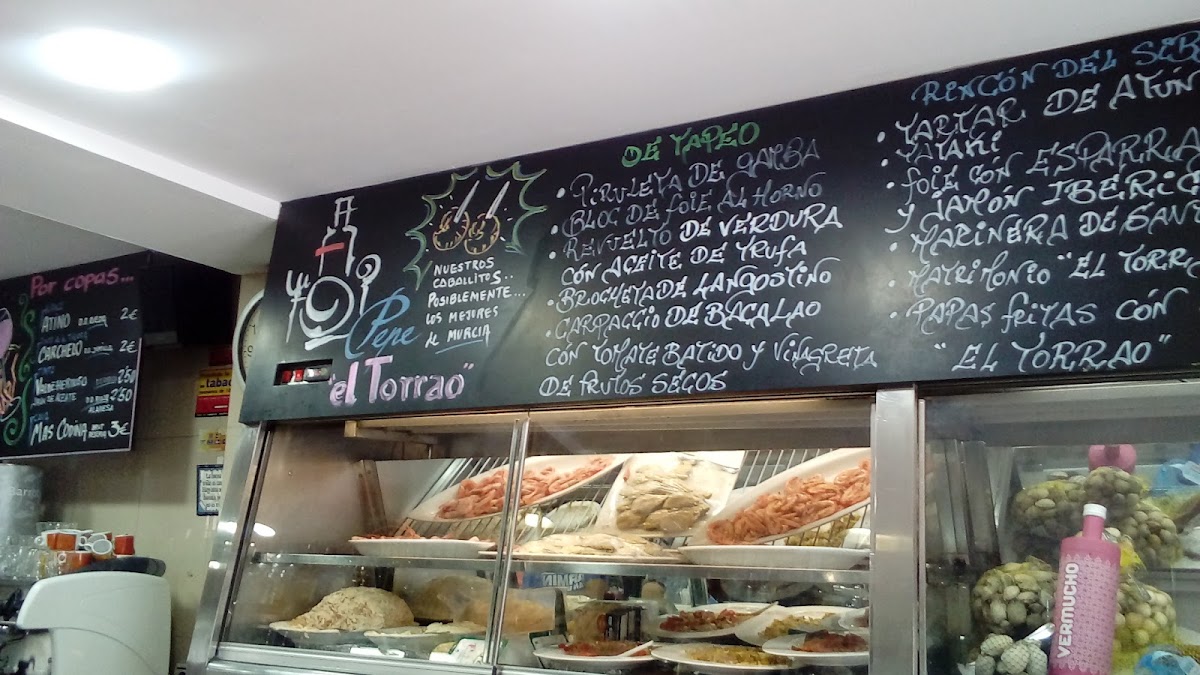 Por copas...
ATINO 2€
CARCHELO 2€
VALDEHERMOSO 2'50
2'50
MAS CODINA 3€
Pepe
"el Torrao"
NUESTROS
CABALLITOS..
POSIBLEMENTE...
LOS MEJORES
de MURCIA
DE TAPEO
• PIRULETA DE GAMBA
• BLOC DE FOIE AL HORNO
• REVUELTO DE VERDURA
CON ACEITE DE TRUFA
• BROCHETA DE LANGOSTINO
• CARPACCIO DE BACALAO
CON TOMATE BATIDO Y VINAGRETA
DE FRUTOS SECOS
RINCÓN DEL SIB
• TARTAR DE ATÚN
• TATAKI
• FOIE CON ESPARRA
Y JAMÓN IBERIC
• MARINERA DE SAN
• MATRIMONIO "EL TORRA
• PAPAS FRITAS CON
"EL TORRAO"
VERMUCHO